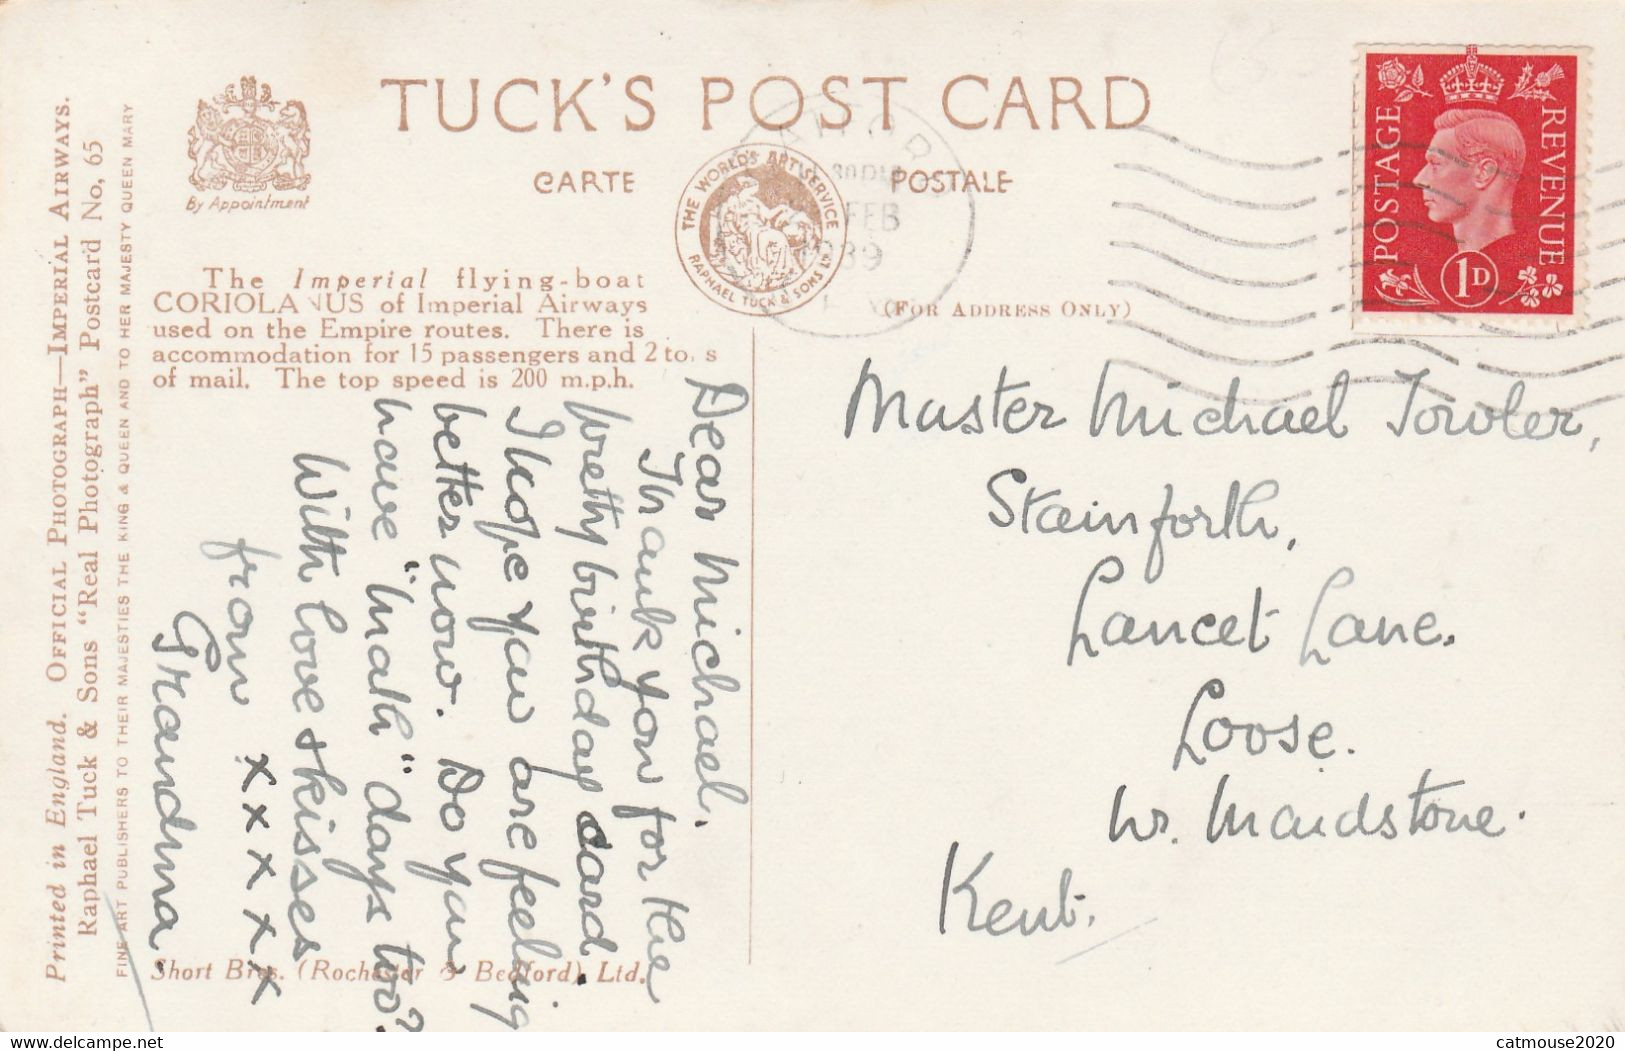 TUCK'S POST CARD
CARTE POSTALE
By Appointment
THE WORLD'S ART SERVICE
RAPHAEL TUCK & SONS LTD
FEB
POSTAGE
REVENUE
1D
The Imperial flying-boat
CORIOLANUS of Imperial Airways
used on the Empire routes. There is
accommodation for 15 passengers and 2 tons
of mail. The top speed is 200 m.p.h.
(FOR ADDRESS ONLY)
Printed in England. OFFICIAL PHOTOGRAPH—IMPERIAL AIRWAYS.
Raphael Tuck & Sons "Real Photograph" Postcard No, 65
FINE ART PUBLISHERS TO THEIR MAJESTIES THE KING & QUEEN AND TO HER MAJESTY QUEEN MARY
Dear Michael.
Thank you for the
pretty birthday card.
I hope you are feeling
better now. Do you
have "math" days too?
With love & kisses
from x x x x x
Grandma
Master Michael Towler,
Stainforth,
Lancet Lane.
Loose.
Nr. Maidstone.
Kent.
Short Bros. (Rochester & Bedford) Ltd.
delcampe.net
catmouse2020